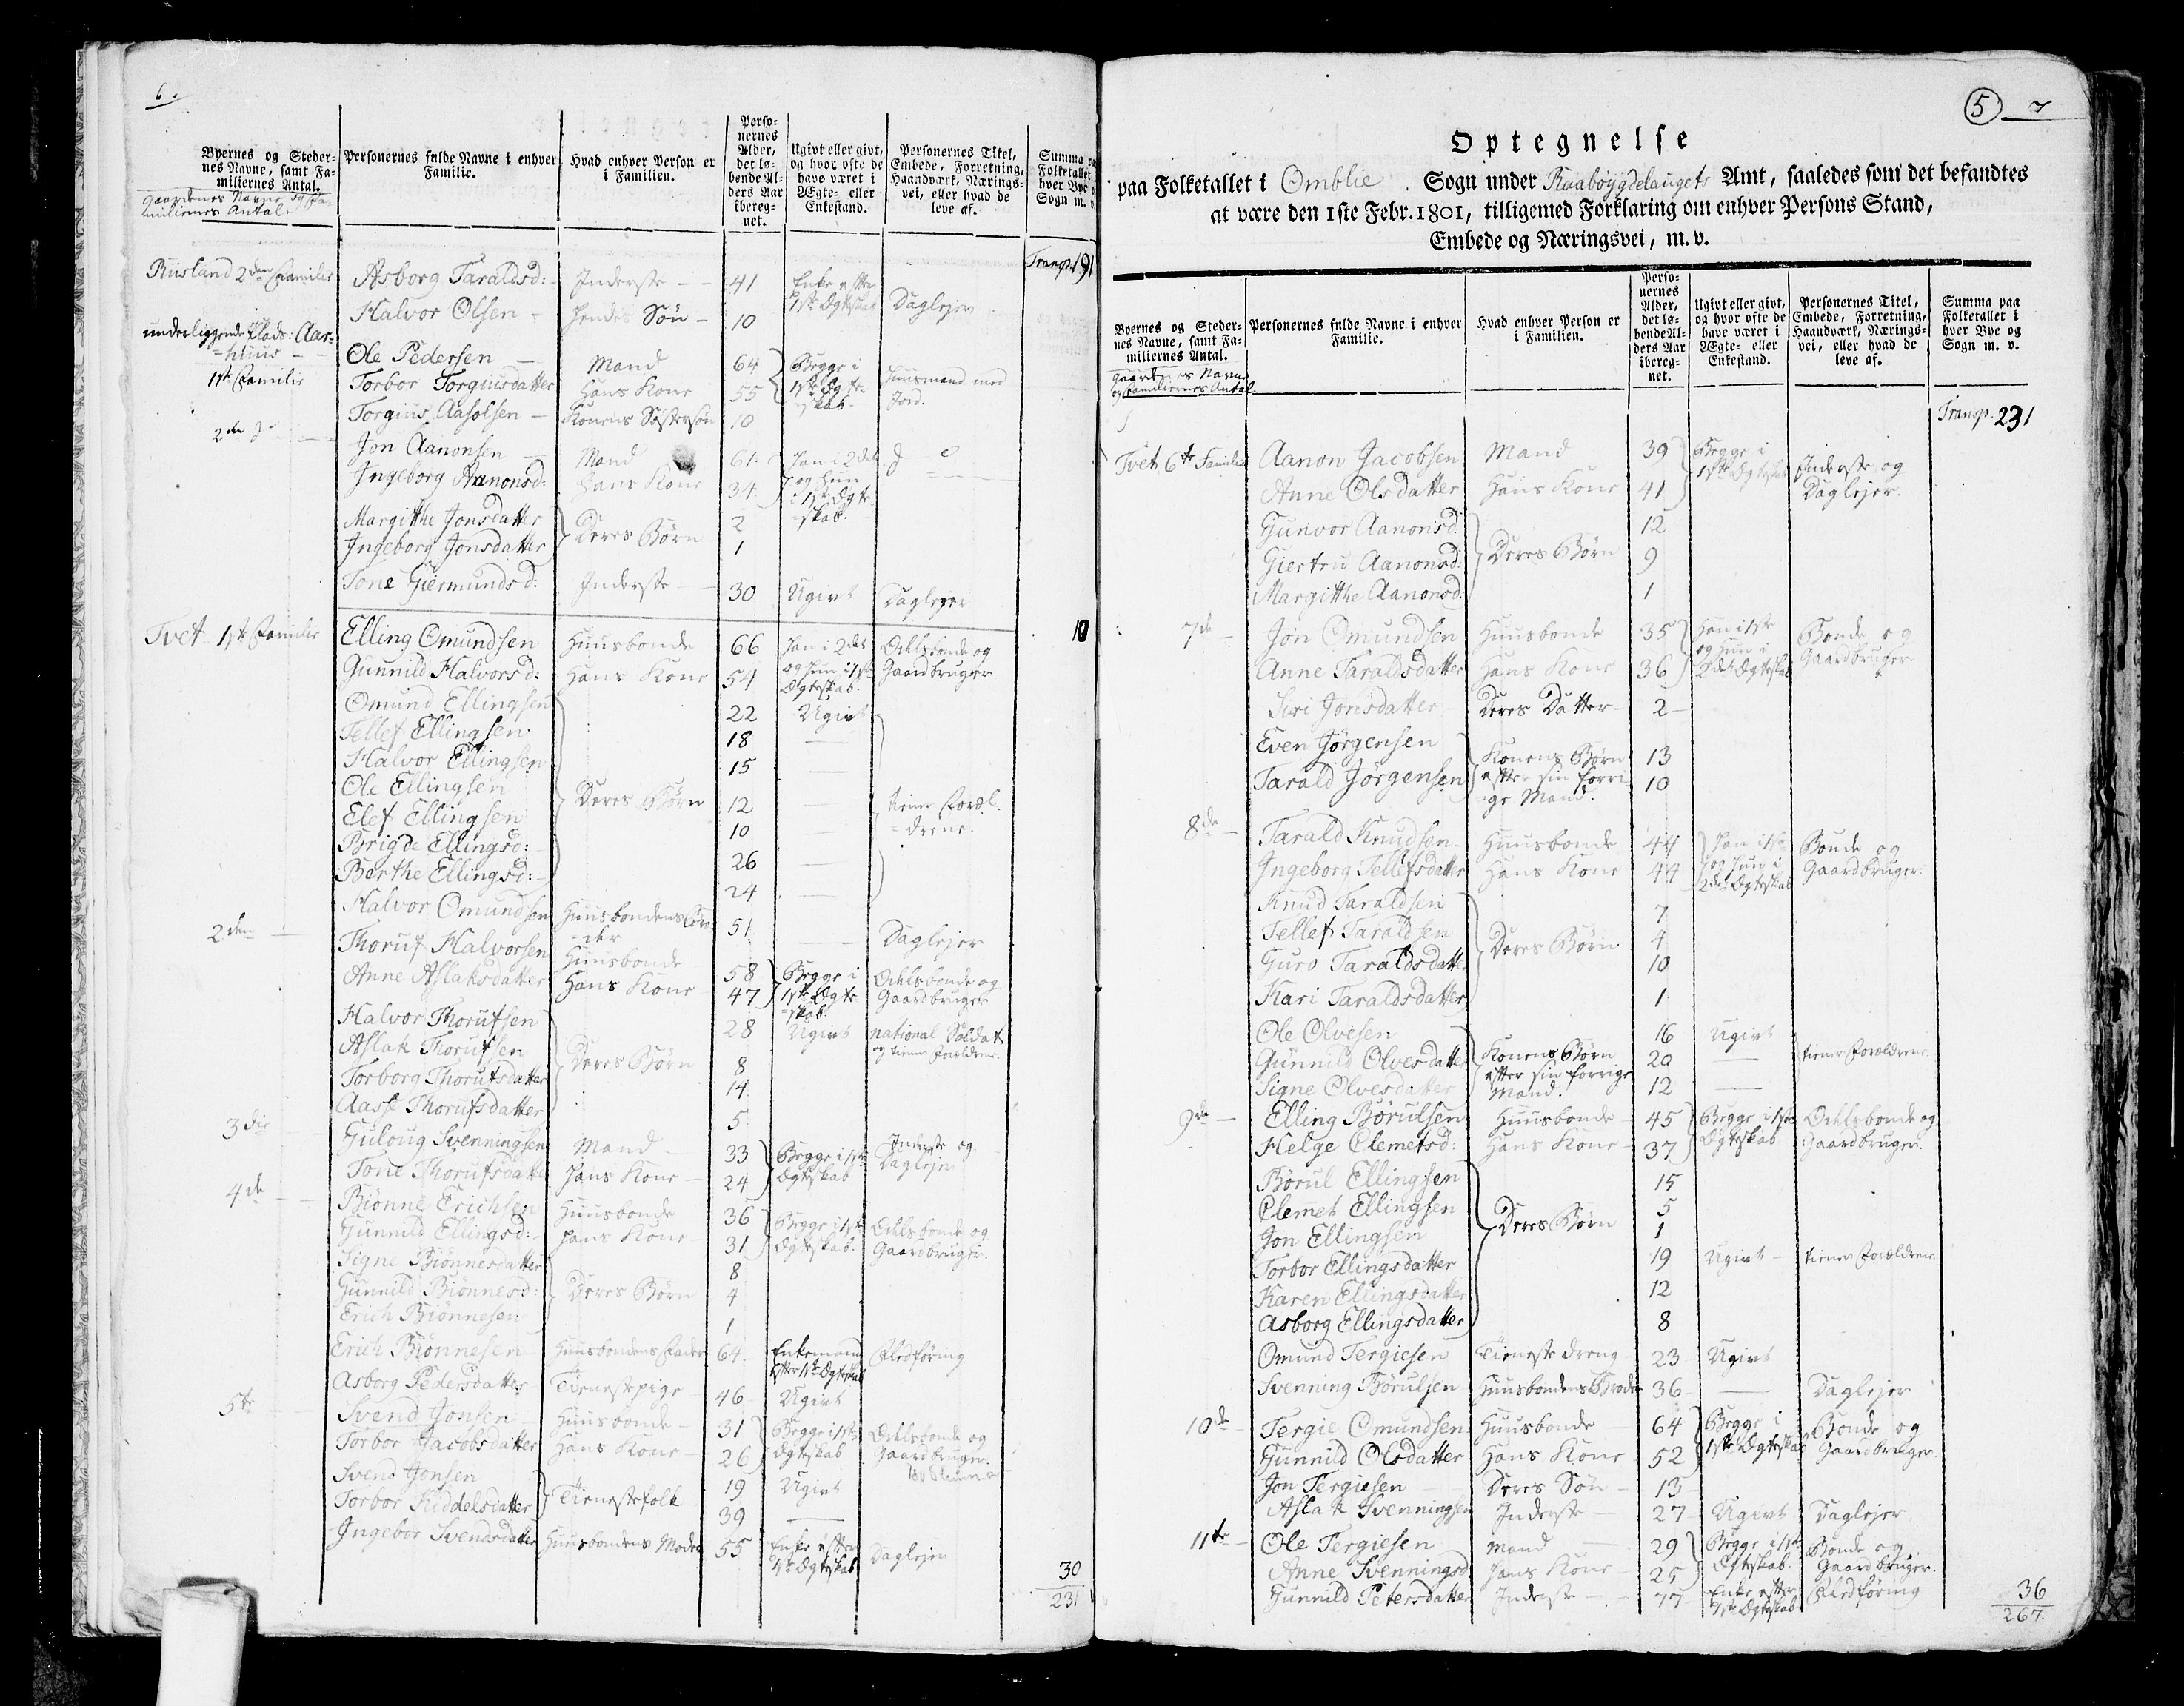 6.
Byernes og Steder-
nes Navne, samt Fa-
miliernes Antal.
Gaardenes Navne og Fa-
miliernes Antal.
Personernes fulde Navne i enhver
Familie.
Hvad enhver Person er
i Familien.
Perso-
nernes
Alder,
det lø-
bende Al-
ders Aar
ibereg-
net.
Ugivt eller givt,
og hvor ofte de
have været i
Ægte- eller
Enkestand.
Personernes Titel,
Embede, Forretning,
Haandværk, Nærings-
vei, eller hvad de
leve af.
Summa
Folketallet
hver Bye
Sogn m. v.
Transp. 191
Riisland 2den Familie Asborg Taraldsd: Inderste 41 Enke efter 1ste Ægteskab Daglejer
Halvor Olsen hendes Søn 10
underliggende Plads: Aar-
huus
1ste Familie Ole Pedersen Mand 64 Begge i 1ste Ægteskab Huusmand med Jord.
Torbor Torgiusdatter Hans Kone 55
Torgius Aasolsen Konens Søstersøn 10
2den Jon Aanonsen Mand 61 Han i 2det og Hun i 1ste Ægteskab.
Ingeborg Aanonsd: Hans Kone 34
Margithe Jonsdatter Deres Børn 2
Ingeborg Jonsdatter 1
Tone Giermundsd: Inderste 30 Ugivt Daglejer
10
Tvet 1ste Familie Elling Omundsen Huusbonde 66 Han i 2det og Hun i 1ste Ægteskab. Odelsbonde og Gaardbruger
Gunnild Halvorsd: Hans Kone 54
Omund Ellingsen Deres Børn 22 Ugivt tiener Foræl-drene.
Tellef Ellingsen 18
Halvor Ellingsen 15
Ole Ellingsen 12
Elef Ellingsen 10
Brigde Ellingsd: 26
Berthe Ellingsd: 24
Halvor Omundsen Huusbondens Bro-der 51 Daglejer
2den Thoruf Halvorsen Huusbonde 58 Begge i 1ste Ægteskab. Odelsbonde og Gaardbruger
Anne Aslaksdatter Hans Kone 47
Halvor Thorufsen Deres Børn 28 Ugivt national Soldat og tiener Forældrene.
Aslak Thorufsen 8
Torborg Thorufsdatter 14
Aasse Thorufsdatter 5
3die Guloug Svenningsen Mand 33 Begge i 1ste Ægteskab Inderste og Daglejer
Tone Thorufsdatter Hans Kone 24
4de Biønne Erichsen Huusbonde 36 Begge i 1ste Ægteskab. Odelsbonde og Gaardbruger.
Gunnild Ellingsd: Hans Kone 31
Signe Biønnesdatter Deres Børn 8
Gunnild Biønnesd: 4
Erich Biønnesen 1
Erich Biønnesen Huusbondens Fader 64 Enkemand efter 1ste Ægteskab Fledføring
Asborg Pedersdatter Tienestepige 46 Ugivt
5te Svend Jonsen Huusbonde 31 Begge i 1ste Ægteskab Odelsbonde og Gaardbruger.
Torbor Jacobsdatter Hans Kone 26
Svend Jonsen Tienestefolk 19 Ugivt
Torbor Kiddelsdatter 39
Ingebor Svendsdatter Huusbondens Moder 55 Enke efter 1ste Ægteskab Daglejer
30
231
5 7
Optegnelse
paa Folketallet i Omblie Sogn under Raabøygdelaugets Amt, saaledes som det befandtes
at være den 1ste Febr. 1801, tilligemed Forklaring om enhver Persons Stand,
Embede og Næringsvei, m. v.
Byernes og Steder-
nes Navne, samt Fa-
miliernes Antal.
Gaardenes Navne
og Familiernes Antal.
Personernes fulde Navne i enhver
Familie.
Hvad enhver Person er
i Familien.
Perso-
nernes
Alder,
det lø-
bende Al-
ders Aar
ibereg-
net.
Ugivt eller givt,
og hvor ofte de
have været i
Ægte- eller
Enkestand.
Personernes Titel,
Embede, Forretning,
Haandværk, Nærings-
vei, eller hvad de
leve af.
Summa paa
Folketallet i
hver Bye og
Sogn m. v.
Transp. 231
Tvet 6te Familie Aanon Jacobsen Mand 39 Begge i 1ste Ægteskab Inderste og Daglejer.
Anne Olsdatter Hans Kone 41
Gunvor Aanonsd: Deres Børn 12
Giertru Aanonsd: 9
Margitthe Aanonsd: 1
7de Jon Omundsen Huusbonde 35 Han i 1ste og Hun i 2det Ægteskab Bonde og Gaardbruger.
Anne Taraldsdatter Hans Kone 36
Siri Jonsdatter Deres Datter 2
Even Jørgensen Konens Børn efter sin forri-ge Mand. 13
Tarald Jørgensen 10
8de Tarald Knudsen Huusbonde 44 Han i 1ste og Hun i 2det Ægteskab Bonde og Gaardbruger.
Ingeborg Tellefsdatter Hans Kone 44
Knud Taraldsen Deres Børn 7
Tellef Taraldsen 4
Guro Taraldsdatter 10
Kari Taraldsdatter 1
Ole Olvesen Konens Børn efter sin forrige Mand. 16 Ugivt tiener Forældrene.
Gunnild Olvesdatter 20
Signe Olvesdatter 12
9de Elling Børulsen Huusbonde 45 Begge i 1ste Ægteskab Odelsbonde og Gaardbruger.
Helge Clemetsd: Hans Kone 37
Børul Ellingsen Deres Børn 15
Clemet Ellingsen 5
Jon Ellingsen 1
Torbor Ellingsdatter 19 Ugivt tiener Forældrene.
Karen Ellingsdatter 12
Asborg Ellingsdatter 8
Omund Tergiesen Tieneste dreng 23 Ugivt
Svenning Børulsen Huusbondens Broder 36 Daglejer
10de Tergie Omundsen Huusbonde 64 Begge i 1ste Ægteskab Bonde og Gaardbruger
Gunnild Olsdatter Hans Kone 52
Jon Tergiesen Deres Søn 13
Aslak Svenningsen Inderste 27 Ugivt Daglejer
11te Ole Tergiesen Mand 29 Begge i 1ste Ægteskab. Bonde og Gaardbruger.
Anne Svenningsd. Hans Kone 25
Gunnild Petersdatter Inderste 77 Enke efter 1ste Ægteskab Fledføring
36
267.